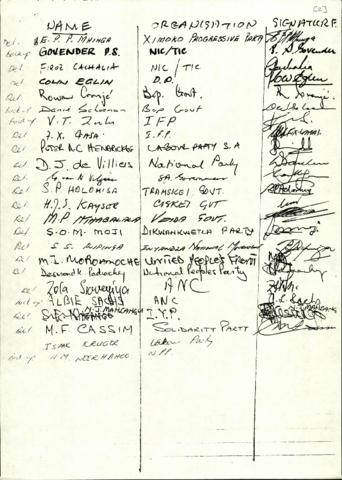 [23]
NAME ORGANISATION SIGNATURE
Del. E.P.P. MHINGA XIMOKO PROGRESSIVE PARTY
GOVENDER P.S. NIC/TIC P. S. Govender
Del FIROZ CACHALIA NIC / TIC
Del COLIN EGLIN D.P. Colin Eglin
Del Rowan Cronjé Bop. Govt.
David Schoeman Bop Govt
V.T. Zulu IFP
Del J.X. GASA I.F.P.
Del PETER N.C. HENDRICKSE LABOUR PARTY S A
Del D.J. de Villiers National Party
Del SA. Government
Del S.P HOLOMISA TRANSKEI GOVT. Holomisa
Del H.J.S. KAYSER CISKEI GVT
Del M.P MTHABALALA VENDA GOVT.
Del S.O.M. MOJI DIKWANKWETLA PARTY
Del S.S. RIPINGA INYANDZA National Movement
Del M.I. MOROAMOCHE UNITED PEOPLES FRONT
Del Desmond K. Padiachey National Peoples Party
Del Zola Skweyiya ANC
ALBIE SACHS ANC A. L. Sachs
Del I.Y.P.
Del M.F. CASSIM SOLIDARITY PARTY
ISAK KRUGER Labour Party
N.M NEERAHOO NPP